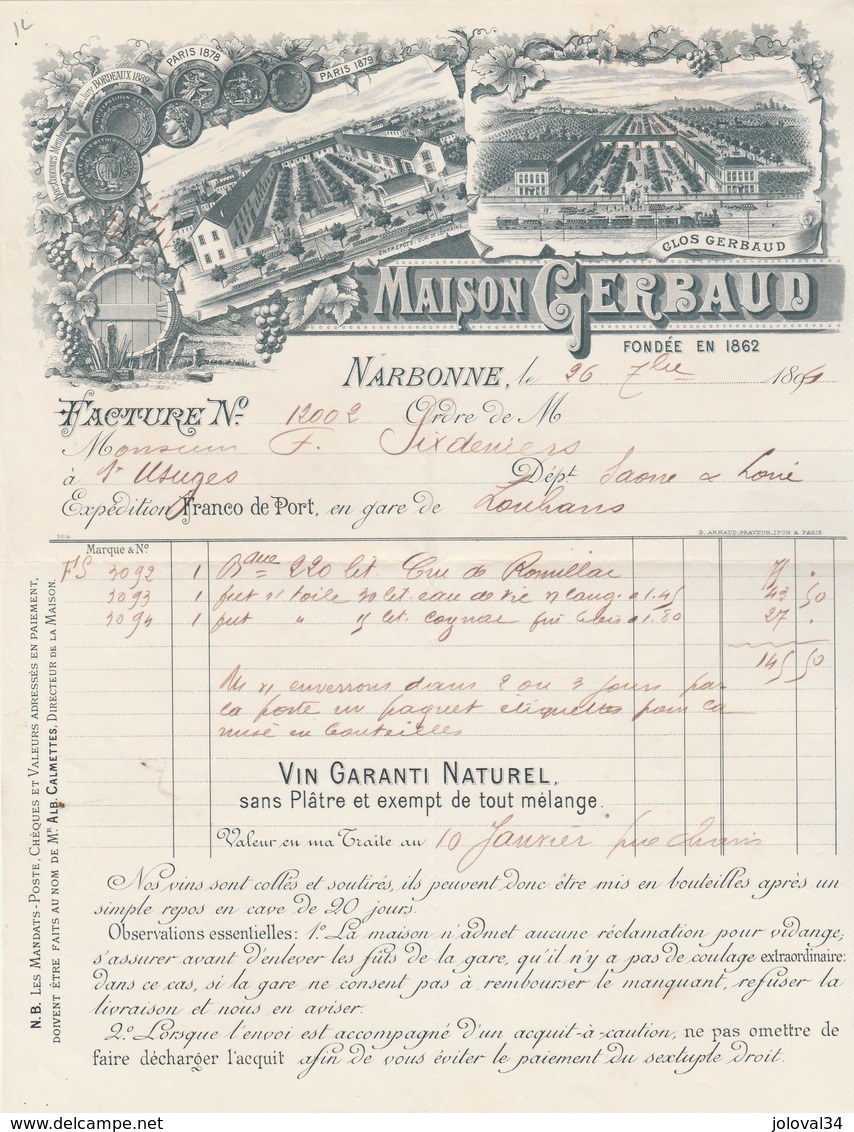 PARIS 1878
PARIS 1879
BORDEAUX 1882
ENTREPÔTS
CLOS GERBAUD
MAISON GERBAUD
FONDÉE EN 1862
NARBONNE, le 26 7bre 189
FACTURE No. 12002 Ordre de M
Monsieur F. Sixdeniers
à St Usuges Dépt. Saone & Loire
Expédition Franco de Port, en gare de Louhans
B. ARNAUD, GRAVEUR, LYON & PARIS
Marque & No
FS 3092 1 Bque 220 lit Cru de
3093 1 fut eau de vie a 1.45 43 50
3094 1 fut " lit. cognac a 1.80 27 .
145 50
enverrons dans 2 ou 3 jours par
la poste un paquet étiquettes pour la
mise en bouteilles
VIN GARANTI NATUREL,
sans Plâtre et exempt de tout mélange.
Valeur en ma Traite au 10 Janvier
Nos vins sont collés et soutirés, ils peuvent donc être mis en bouteilles après un
simple repos en cave de 20 jours.
Observations essentielles: 1o. La maison n'admet aucune réclamation pour vidange,
s'assurer avant d'enlever les fûts de la gare, qu'il n'y a pas de coulage extraordinaire:
dans ce cas, si la gare ne consent pas à rembourser le manquant, refuser la
livraison et nous en aviser.
2o. Lorsque l'envoi est accompagné d'un acquit-à-caution, ne pas omettre de
faire décharger l'acquit afin de vous éviter le paiement du sextuple droit.
N.B. LES MANDATS-POSTE, CHÈQUES ET VALEURS ADRESSÉS EN PAIEMENT,
DOIVENT ÊTRE FAITS AU NOM DE MR ALB. CALMETTES, DIRECTEUR DE LA MAISON.
www.delcampe.net
joloval34